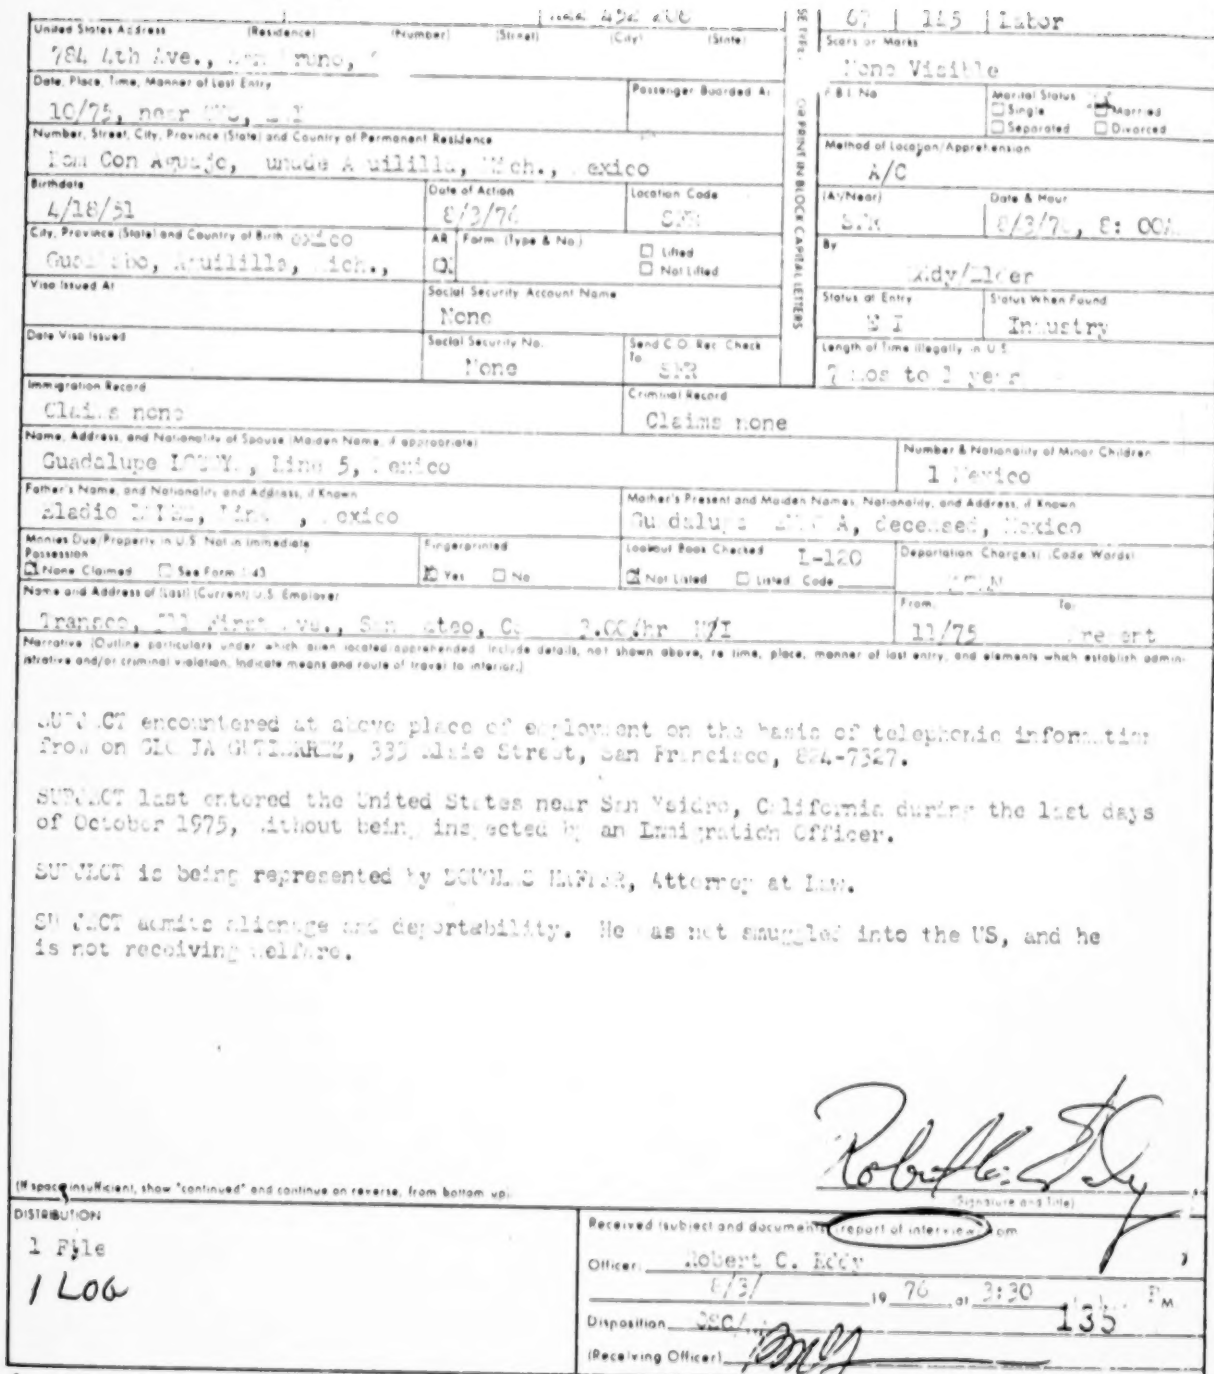 67 145 Labor
United States Address (Residence) (Number) (Street) (City) (State)
784 4th Ave.,
Scars or Marks
None Visible
Date, Place, Time, Manner of Last Entry
10/75, near
Passenger Boarded At
F.B.I. No.
Marital Status
Single Married
Separated Divorced
Number, Street, City, Province (State) and Country of Permanent Residence
Method of Location/Apprehension
A/C
Birthdate
4/18/51
Date of Action
8/3/76
Location Code
SFR
(At/Near)
SFR
Date & Hour
8/3/76, 8: 00A
City, Province (State) and Country of Birth
AR Form: (Type & No.) Lifted
Not Lifted
By
Eddy/Elder
Visa Issued At
Social Security Account Name
None
Status at Entry
Status When Found
Industry
Date Visa Issued
Social Security No.
None
Send C.O. Rec. Check To
SFR
Length of Time Illegally in U.S.
7 mos to 1 year
SE TYPE OR PRINT IN BLOCK CAPITAL LETTERS
Immigration Record
Claims none
Criminal Record
Claims none
Name, Address, and Nationality of Spouse (Maiden Name, if appropriate)
Guadalupe Mexico
Number & Nationality of Minor Children
1 Mexico
Father's Name, and Nationality and Address, if Known
Eladio Mexico
Mother's Present and Maiden Names, Nationality, and Address, if Known
Guadalupe deceased, Mexico
Monies Due/Property in U.S. Not in Immediate Possession
None Claimed See Form I-43
Fingerprinted
Yes No
Lookout Book Checked I-120
Not Listed Listed, Code
Deportation Charge(s) (Code Words)
Name and Address of (Last) (Current) U.S. Employer
From: To:
11/75 Present
Narrative (Outline particulars under which alien located/apprehended. Include details, not shown above, re time, place, manner of last entry, and elements which establish admin-
istrative and/or criminal violation. Indicate means and route of travel to interior.)
SUBJECT encountered at above place of employment on the basis of telephonic information
from on GUTIERREZ, Street, San Francisco, 824-7327.
SUBJECT last entered the United States near San Ysidro, California during the last days
of October 1975, without being inspected by an Immigration Officer.
SUBJECT is being represented by DOUGLAS Attorney at Law.
SUBJECT admits alienage and deportability. He was not smuggled into the US, and he
is not receiving welfare.
(If space insufficient, show "continued" and continue on reverse, from bottom up).
(Signature and Title)
DISTRIBUTION
1 File
1 LOG
Received (subject and documents) (report of interview) from
Officer: Robert C. Eddy
8/3/ 19 76 at 3:30 P M.
135
Disposition
(Receiving Officer)